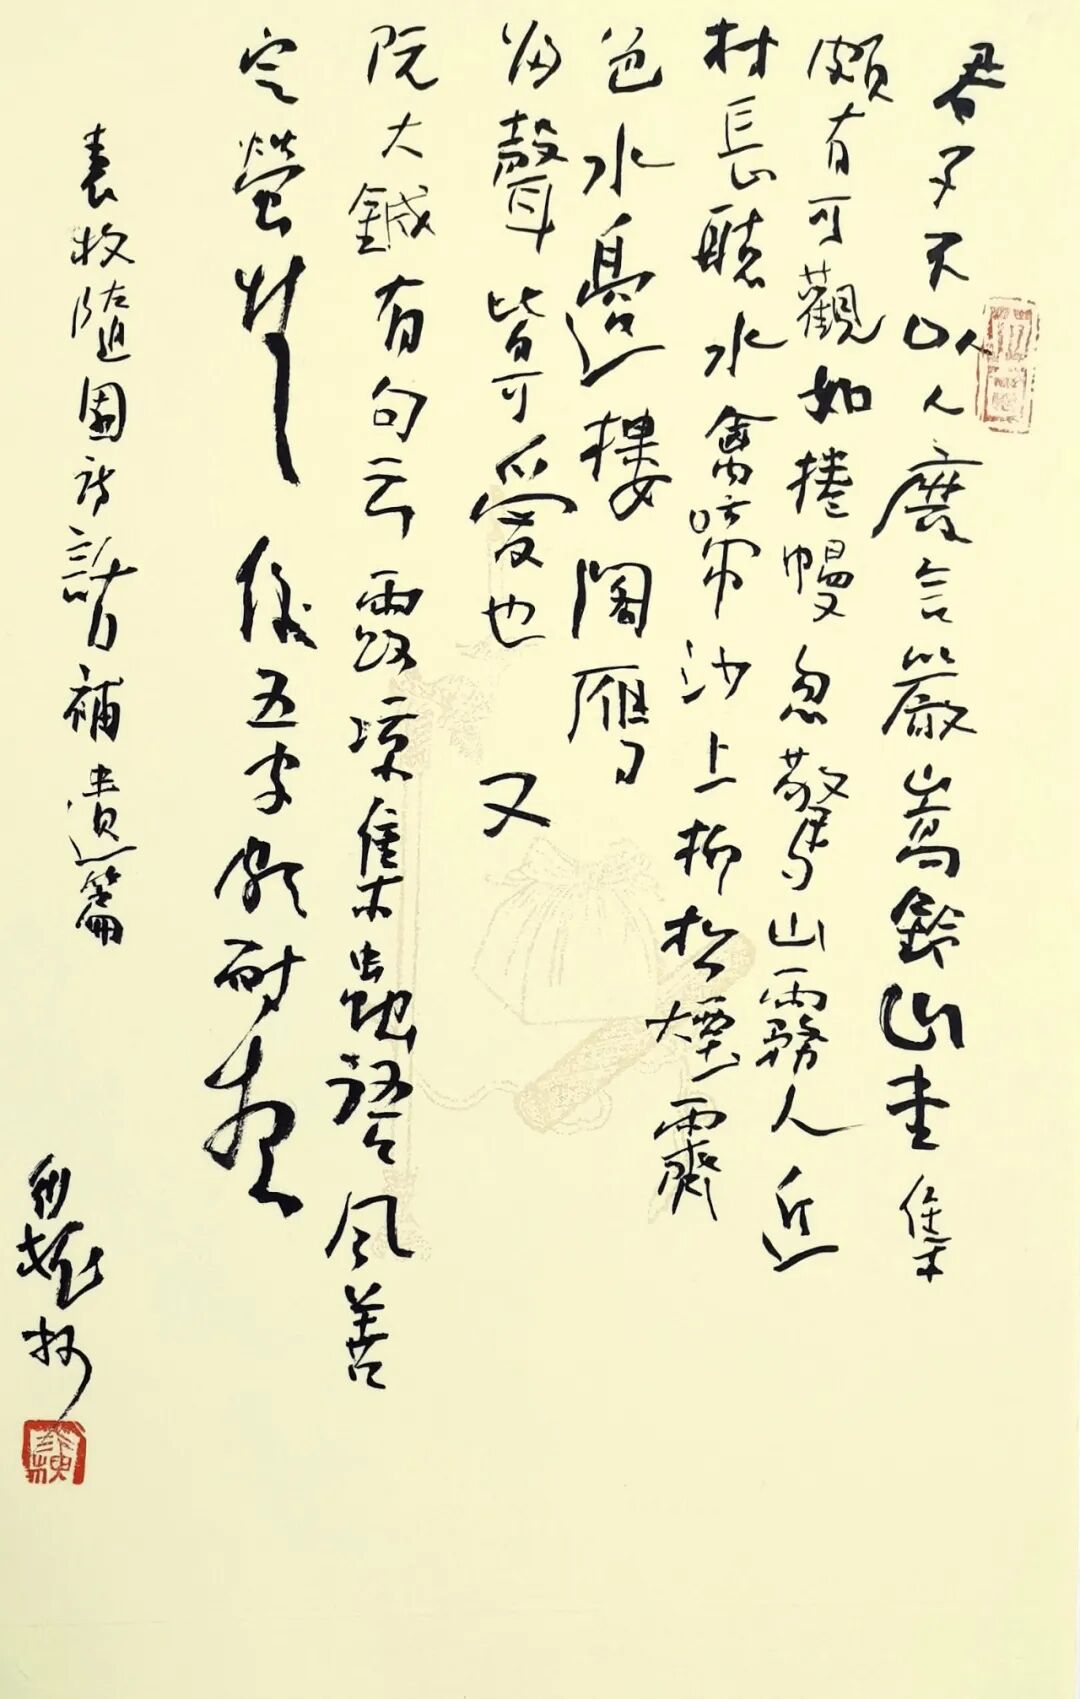 君子不以人廢言嚴嵩鈐山堂集
頗有可觀如捲幔忽驚山霧人近
村長聽水禽啼沙上柳松煙霽
色水邊樓閣雁
為聲皆可愛也又
阮大鋮有句云露涼集蟲語風善
定螢
後五字頗耐想
袁枚隨園詩話補遺篇